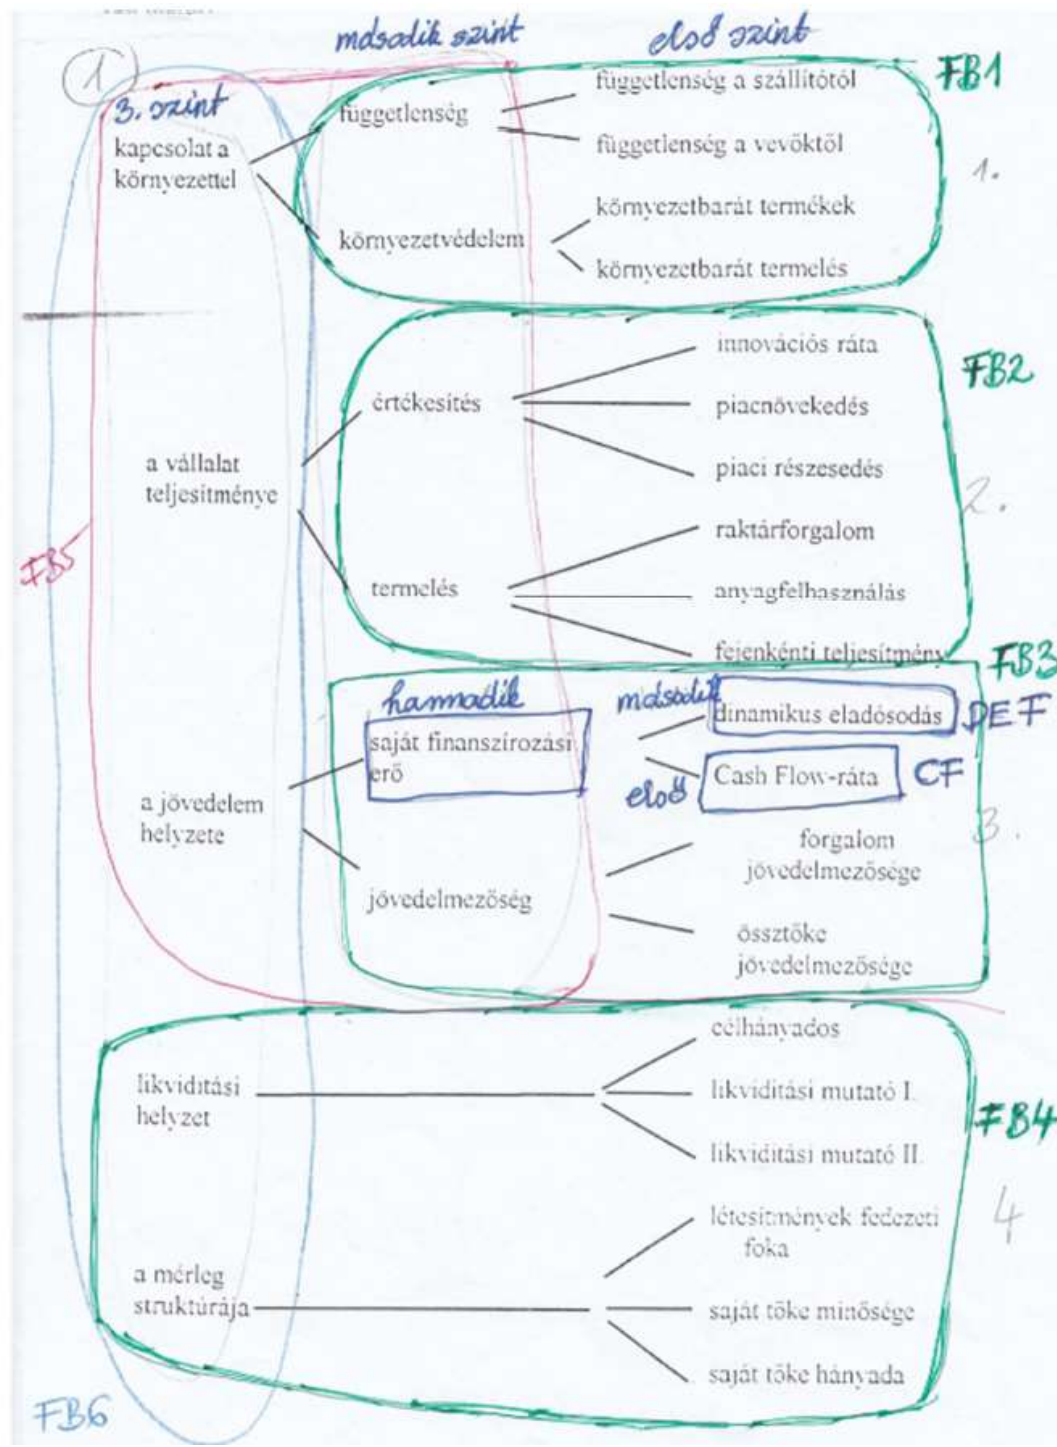 második szint
első szint
1
FB1
3. szint
kapcsolat a
környezettel
függetlenség
függetlenség a szállítótól
függetlenség a vevőktől
1.
környezetvédelem
környezetbarát termékek
környezetbarát termelés
FB2
a vállalat
teljesítménye
értékesítés
innovációs ráta
piacnövekedés
piaci részesedés
2.
FB5
termelés
raktárforgalom
anyagfelhasználás
fejenkénti teljesítmény
FB3
harmadik
második
saját finanszírozási
erő
dinamikus eladósodás
DEF
első
Cash Flow-ráta
CF
a jövedelem
helyzete
3.
jövedelmezőség
forgalom
jövedelmezősége
össztőke
jövedelmezősége
likviditási
helyzet
célhányados
likviditási mutató I.
likviditási mutató II.
FB4
4
a mérleg
struktúrája
létesítmények fedezeti
foka
saját tőke minősége
saját tőke hányada
FB6